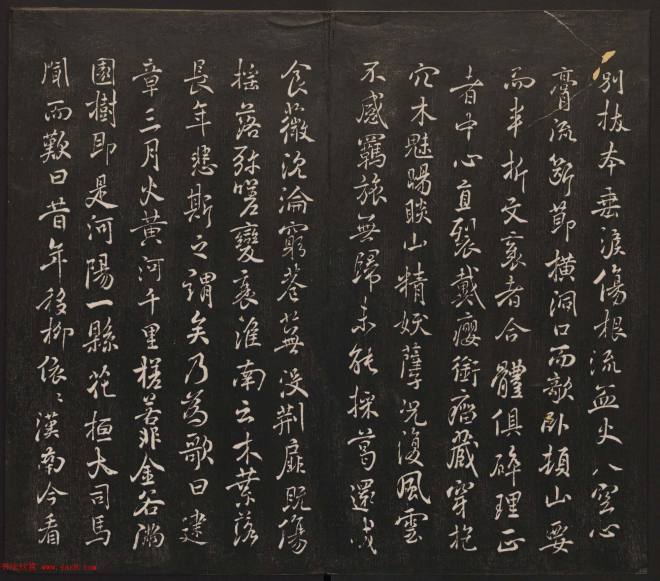 別拔本垂淚傷根流血火入空心
膏流斷節橫洞口而敧臥頓山要
而半折文衺者合體俱碎理正
者中心直裂戴癭銜瘤藏穿抱
穴木魅睗睒山精妖孽況復風雲
不感羈旅無歸未能採葛還成
食薇沉淪窮巷蕪沒荊扉既傷
搖落弥嗟變衰淮南云木葉落
長年悲斯之謂矣乃為歌曰建
章三月火黃河千里槎若非金谷滿
園樹即是河陽一縣花桓大司馬
聞而歎曰昔年移柳依〻漢南今看